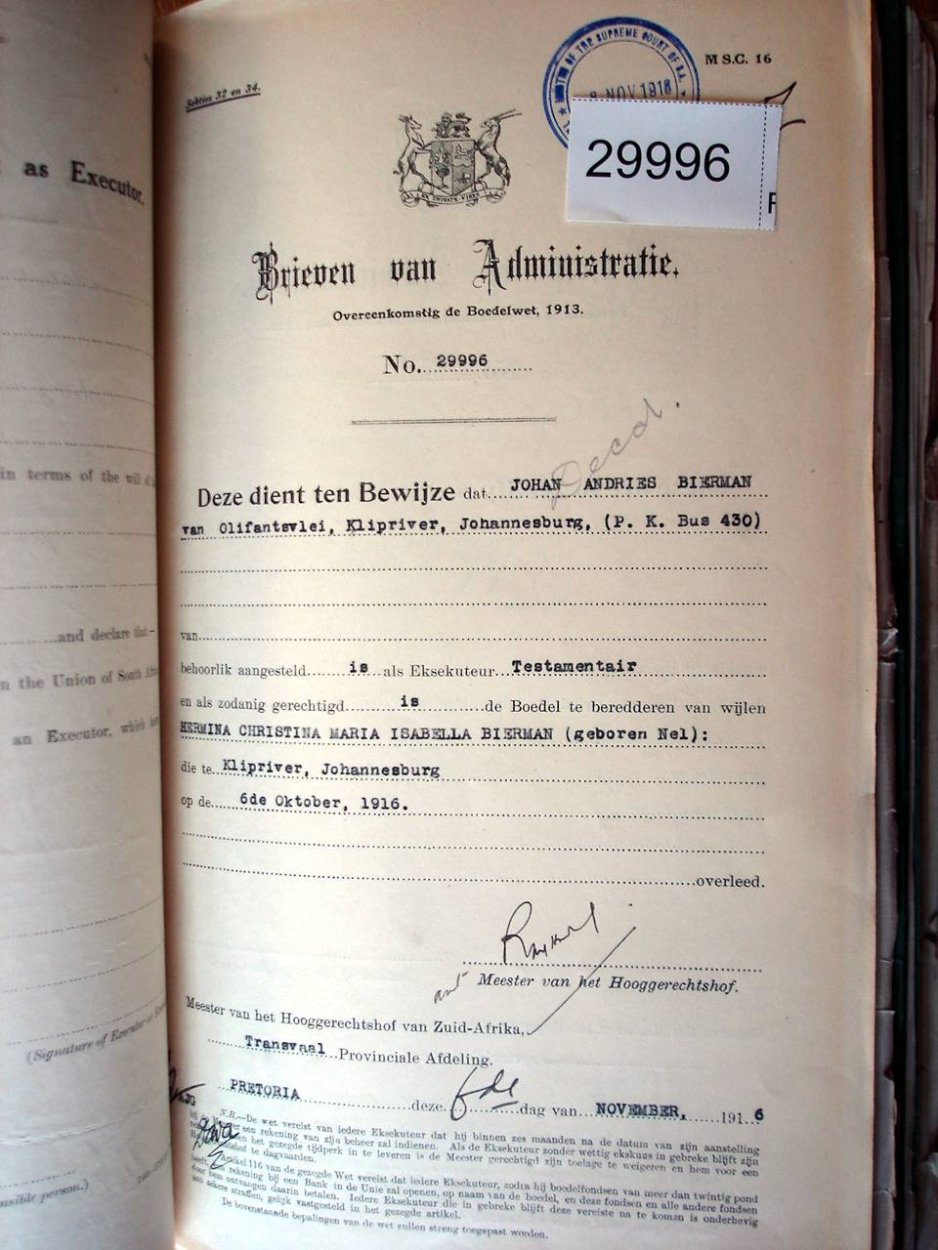 as Executor.
in terms of the will of
and declare that:-
n the Union of South
an Executor, which
(Signature of Executor
nsible person.)
Sekties 32 en 34.
MASTER OF THE SUPREME COURT OF S.A.
NOV 1916
M S.C. 16
29996
EX UNITATE VIRES
Brieven van Administratie.
Overeenkomstig de Boedelwet, 1913.
No. 29996
Deze dient ten Bewijze dat JOHAN ANDRIES BIERMAN
van Olifantsvlei, Klipriver, Johannesburg, (P. K. Bus 430)
van
behoorlijk aangesteld is als Eksekuteur Testamentair
en als zodanig gerechtigd is de Boedel te beredderen van wijlen
HERMINA CHRISTINA MARIA ISABELLA BIERMAN (geboren Nel):
die te Klipriver, Johannesburg
op de 6de Oktober, 1916.
overleed.
Meester van het Hooggerechtshof.
Meester van het Hooggerechtshof van Zuid-Afrika,
Transvaal Provinciale Afdeling.
PRETORIA deze 6de dag van NOVEMBER, 1916
N.B.—De wet vereist van iedere Eksekuteur dat hij binnen zes maanden na de datum van zijn aanstelling
een rekening van zijn beheer zal indienen. Als de Eksekuteur zonder wettig ekskuus in gebreke blijft zijn
het gezegde tijdperk in te leveren is de Meester gerechtigd zijn toelage te weigeren en hem voor een
te dagvaarden.
Artikel 116 van de gezegde Wet vereist dat iedere Eksekuteur, zodra hij boedelfondsen van meer dan twintig pond
rekening bij een Bank in de Unie zal openen, op naam van de boedel, en deze fondsen en alle andere fondsen
door hem ontvangen daarin betalen. Iedere Eksekuteur die in gebreke blijft deze vereiste na te komen is onderhevig
aan zekere straffen, gelijk vastgesteld in het gezegde artikel.
De bovenstaande bepalingen van de wet zullen streng toegepast worden.